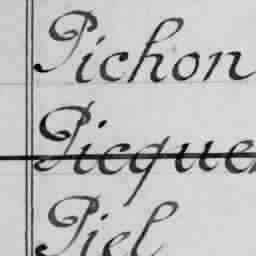 Pichon
Picque
Piel